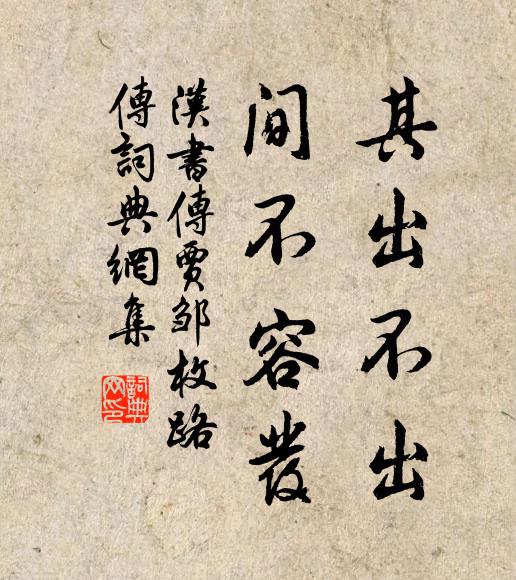 其出不出
間不容發
漢書傳賈邹枚路
傳詞典網集
詞典网印